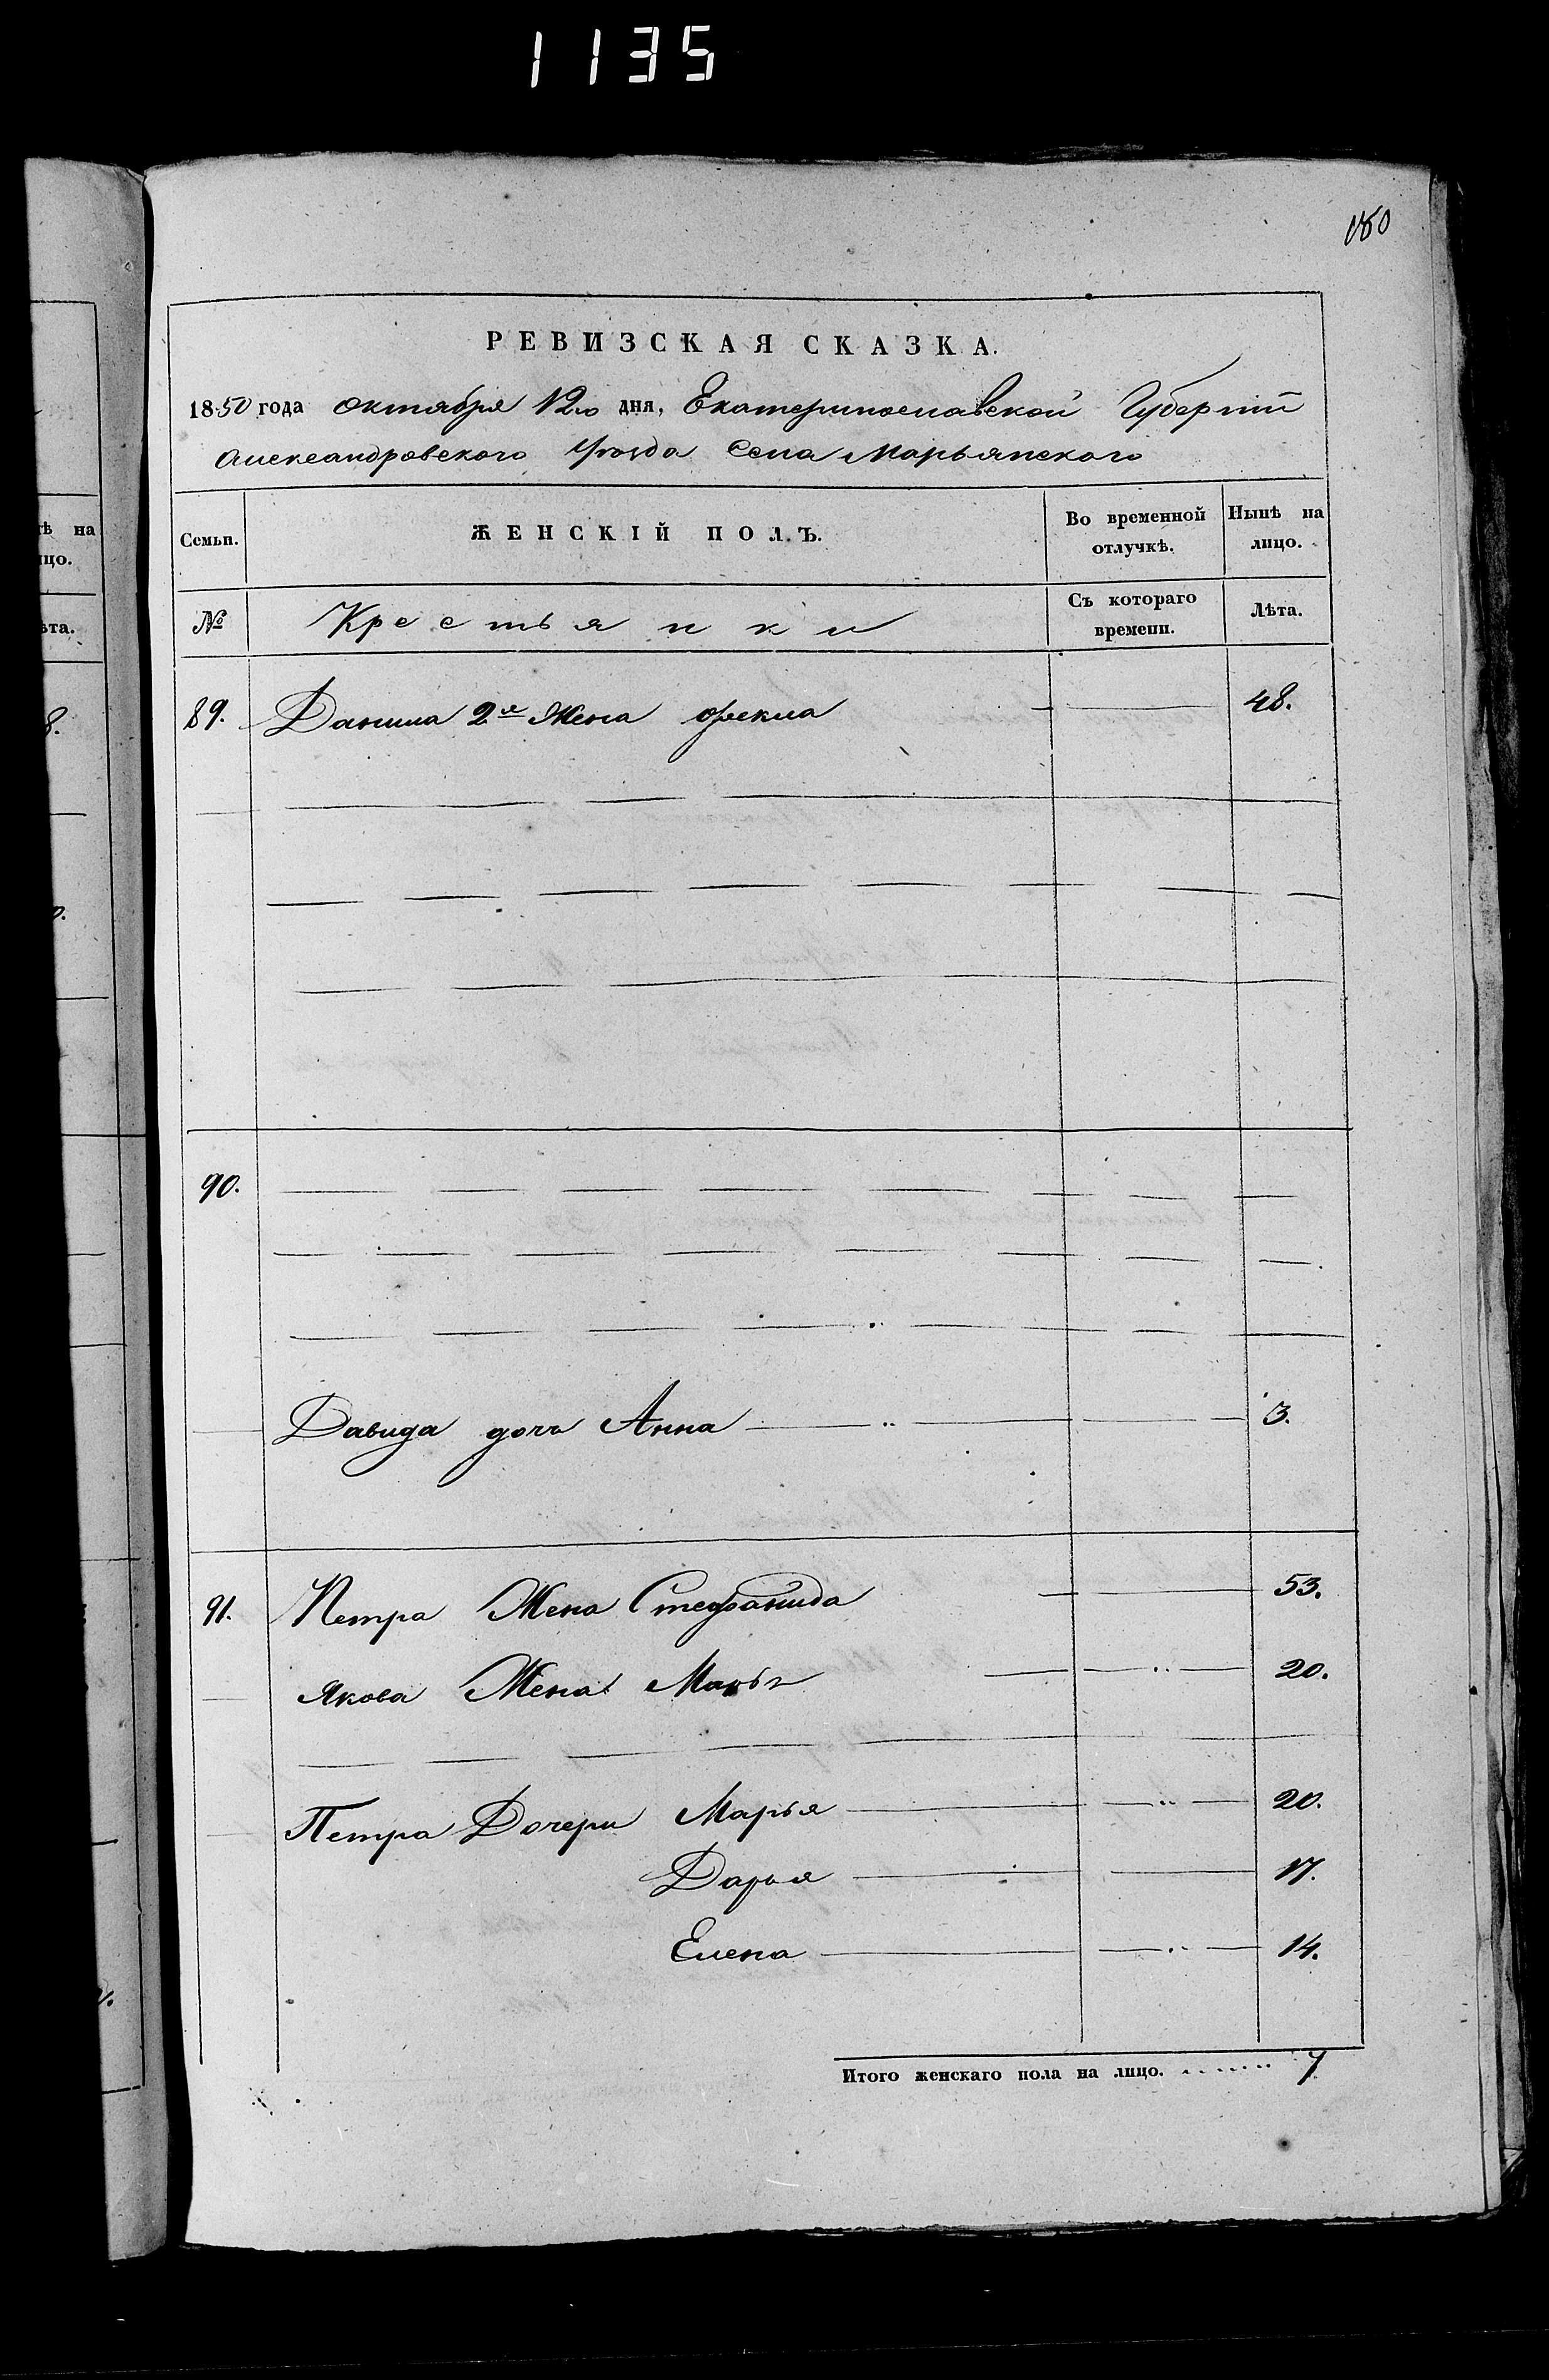 1135
180
РЕВИЗСКАЯ СКАЗКА.
1850 года октября 12го дня, Екатеринославской Губернiи
Александровского Уѣзда Села Марьянского
Семьи. ЖЕНСКІЙ ПОЛЪ. Во временной отлучкѣ. Нынѣ на лицо.
№ Крестьянки Съ котораго времени. Лѣта.
89. Данила 2я Жена Ѳекла 48.
90.
Давида дочь Анна 3.
91. Петра Жена Стефанида 53.
Якова Жена 20.
Петра Дочери Марья 20.
Дарья 17.
Елена 14.
Итого женскаго пола на лицо. 7
ѣ на
цо.
ѣта.
8.